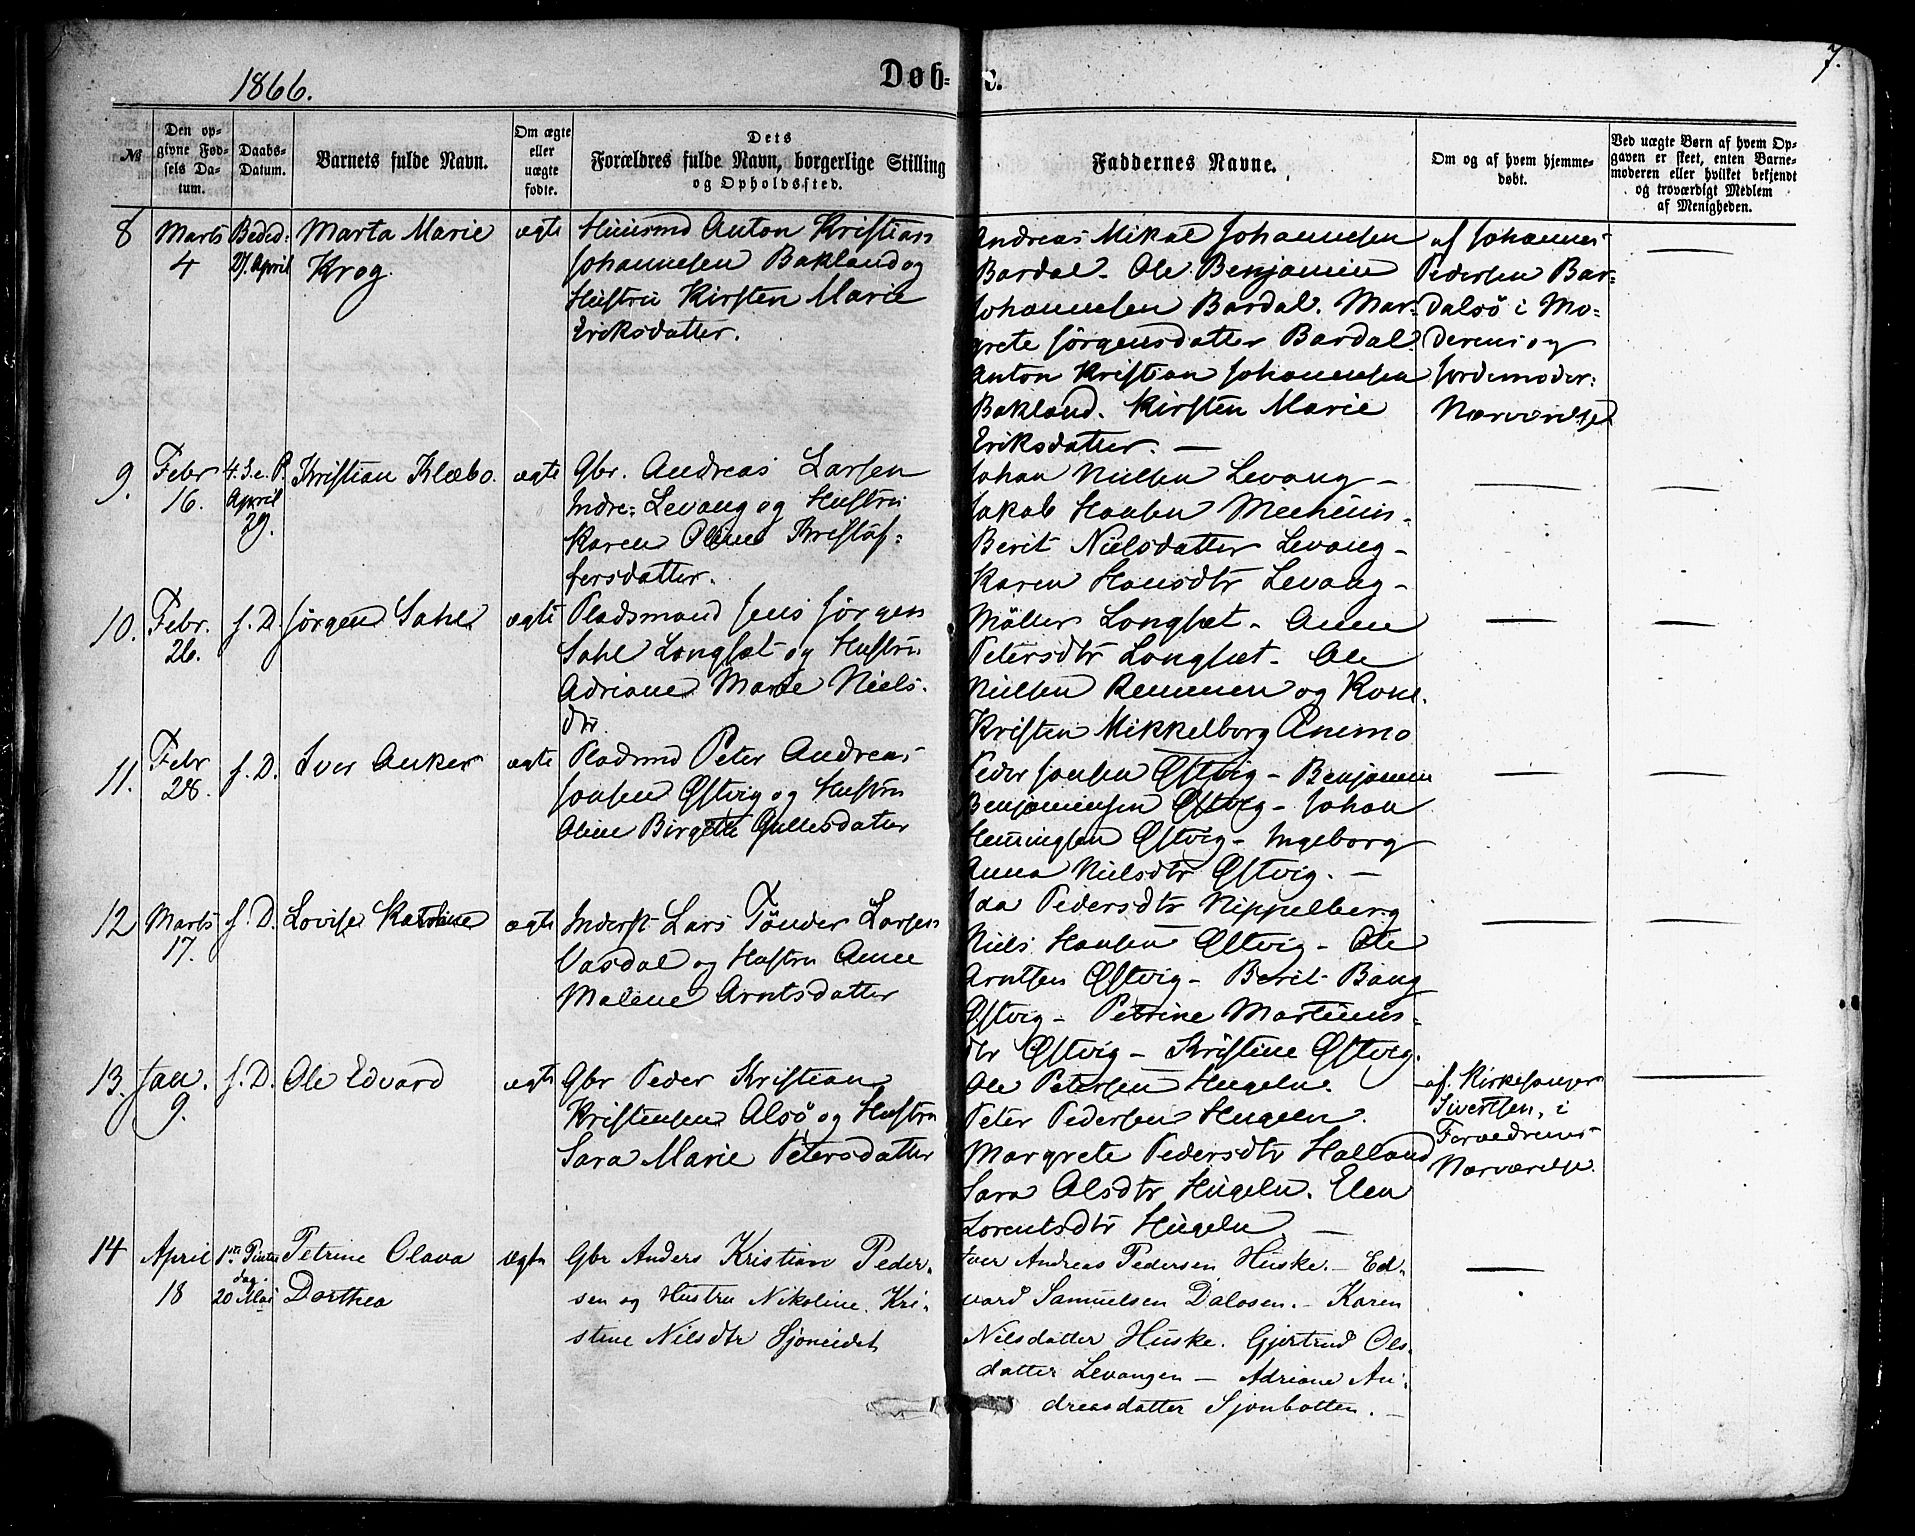 1866.
Døb=
e.
7.
№
Den op-
givne Fød-
sels Da-
tum.
Daabs-
Datum.
Barnets fulde Navn.
Om ægte
eller
uægte
fødte.
Dets
Forældres fulde Navn, borgerlige Stilling
og Opholdssted.
Faddernes Navne.
Om og af hvem hjemme-
døbt.
Ved uægte Børn af hvem Op-
gaven er skeet, enten Barne-
moderen eller hvilket bekjendt
og troværdigt Medlem
af Menigheden.
8
Marts
4
Beded:
27 April
Marta Marie
Krog
ægte
Huusmd Anton Kristian
Johannesen Bakland og
Hustru Kirsten Marie
Eriksdatter.
Andreas Mikal Johannesen
Bardal. Ole Benjamin
Johannesen Bardal. Mar-
grete Jörgensdatter Bardal.
Anton Kristian Johannesen
Bakland. Kirsten Marie
Eriksdatter. —
af Johannes
Pedersen Bar=
dalsö i Mo=
derens og
Jordemoder:
Nærværelse
9.
Febr
16.
4. S. e. P.
April
29.
Kristian Klæbo.
ægte
Gbr. Andreas Larsen
Indre: Levang og Hustru
Karen Oline Kristof=
fersdatter.
Johan Nielsen Levang –
Jakob Hansen
Berit Nielsdatter Levang –
Karen Hansdtr Levang –
10.
Febr.
26.
s. D.
Jörgen Sahl
ægte
Pladsmand Jens Jörgen
Sahl Langset og Hustru
Adriane Marie Niels.
dtr.
Möller Langset – Anne
Petersdtr Langset – Ole
Nielsen Remmen og Kone.
Kristen Mikkelborg
11.
Febr
28.
s. D.
Iver Anker
ægte
Pladsmd Peter Andreas
Jensen Østvig og Hustru
Oline Birgitte Gullesdatter
Peder Jensen Østvig – Benjamin
Benjaminsen Østvig – Johan
Henningsen Østvig – Ingeborg
Anna Nielsdtr Østvig. —
12
Marts
17.
s. D.
Lovise Katrine
ægte
Inderst Lars Tönder Larsen
Vasdal og Hustru Anne
Malene Arntsdatter
Ida Pedersdtr Nippelberg
Niels Hansen Østvig – Ole
Arntsen Østvig – Berit Bang
Østvig – Petrine Martinus-
dtr Østvig – Kristine Østvig.
13.
Jan.
9.
s. D.
Ole Edvard
ægte
Gbr Peder Kristian
Kristensen Alsö og Hustru
Sara Marie Petersdatter
Ole Petersen Hugeln.
Peter Pedersen Hugeln.
Margrete Pedersdtr Halland
Sara Olsdtr Hugeln. Elen
Lorentsdtr Hugeln —
af. Kirkesanger
Sivertsen, i
Forældrenes
Nærværelse.
14
April
18
1ste Pintse
dag.
20 Mai
Petrine Olava
Dorthea
ægte
Gbr Anders Kristian Peder-
sen og Hustru Nikoline Kri-
stine Nilsdtr Sjoneidet
Iver Andreas Pedersen Huske. – Ed-
vard Samuelsen Dalosen. – Karen
Nilsdatter Huske. Gjertrud Ols-
datter Levangen – Adriane An-
dreasdatter Sjonbotten. –